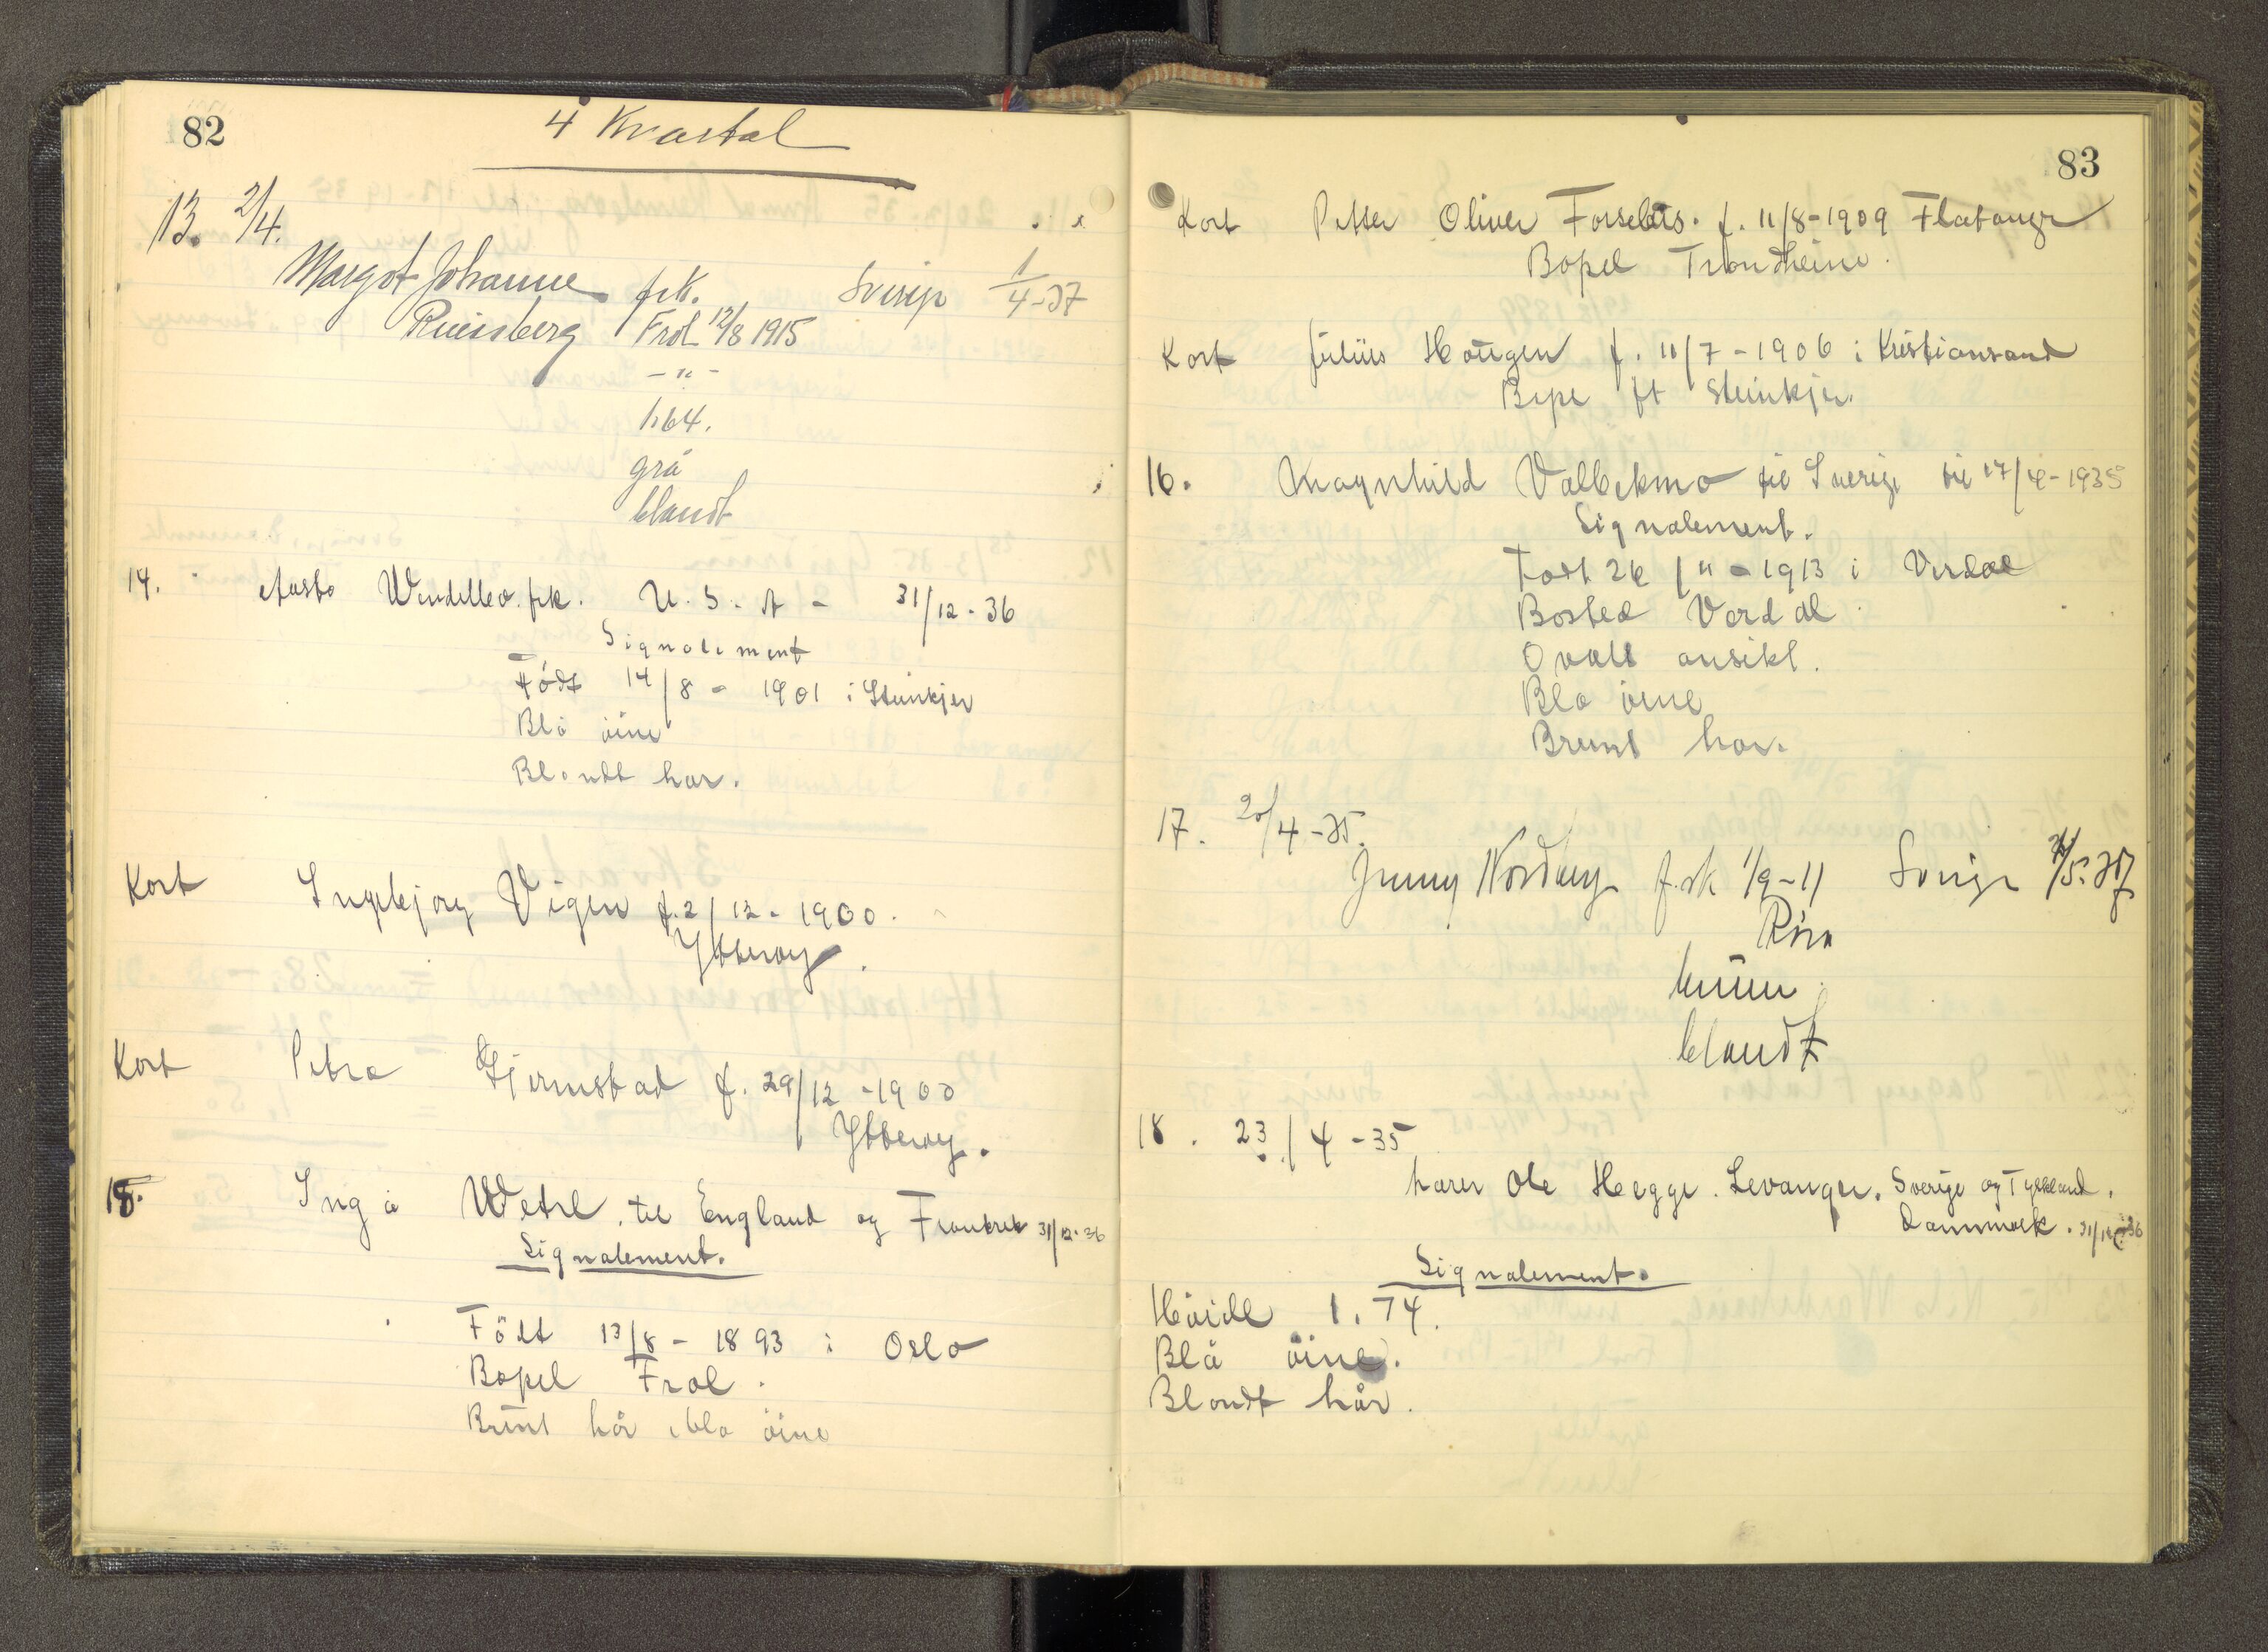 82
4 Kvartal
13. 2/4.
Margot Johanne frk. Sverige 1/4-37
Reinsberg Frol 12/8 1915
- " -
1.64.
grå
blandt
14. Aasta Wendelbo. frk. U. S. A - 31/12-36
Signalement
Födt 14/8 - 1901 i Steinkjer
Blå öine
Blondt hår.
Kort Ingebjørg Vigen f. 2/12 - 1900.
Ytterøy.
Kort Petra Gjermstad f. 29/12 - 1900
Ytterøy.
15. Inga til England og Frankrike 31/12-36
Signalement.
Födt 13/8 - 1893 i Oslo
Bopel Frol.
Brunt hår, blå öine
83
Kort Petter Oliver f. 11/8-1909 Flatanger
Bopel Trondheim.
Kort Julius Haugen f. 11/7 - 1906 i Kristiansand
Steinkjer.
16. Magnhild Valbekmo til Sverige til 17/4-1935
Signalement.
Födt 26/11 - 1913 i Verdal
Bosted Verdal
Ovalt ansikt.
Bla öine
Brunt har.
17. 20/4-35.
Jenny Nordberg frk 1/9-11 Sverige
Röra
brun
blandt
18. 23/4 -35
Ole Hegge. Levanger. Sverige og Tyskland.
Danmark. 31/12-36
Signalement.
Höide 1.74.
Blå öine.
Blondt hår.